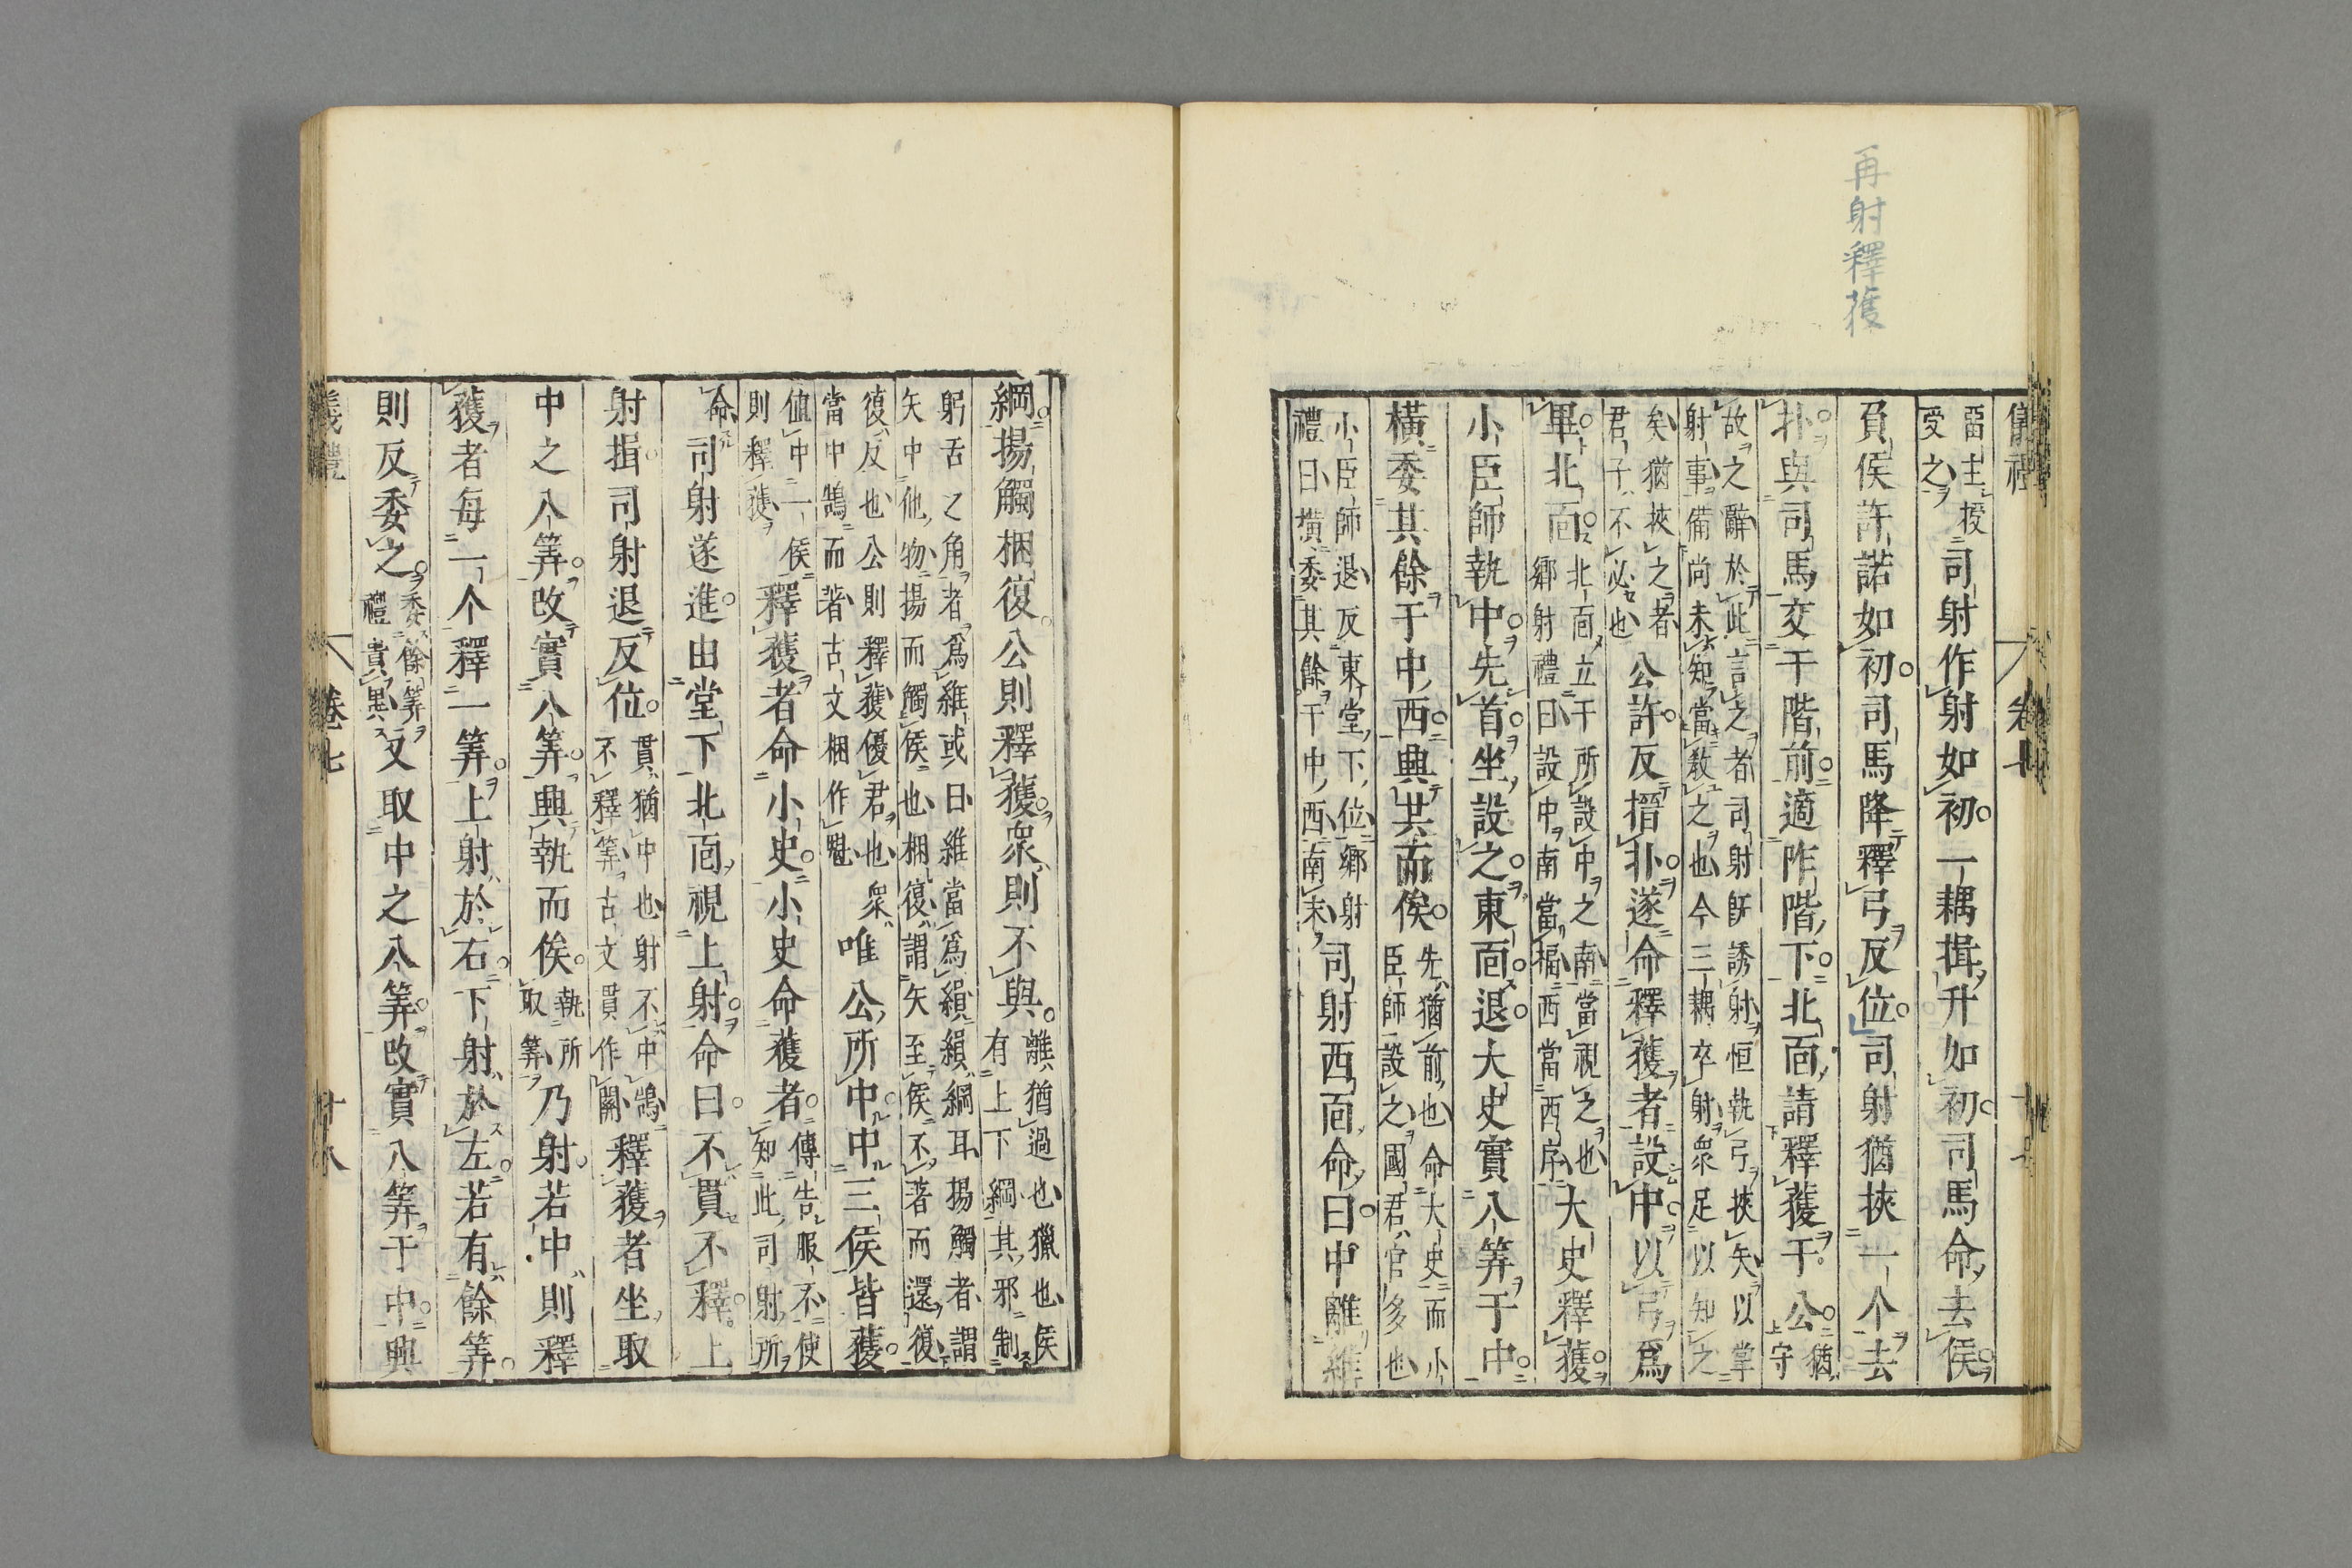 再射釋獲
儀禮 卷七 十七
畱主授受之司射作射如初一耦揖升如初司馬命去侯
負侯許諾如初司馬降釋弓反位司射猶挾一个去
扑與司馬交于階前適阼階下北面請釋獲于公猶守
故之辭於此言之者司射旣誘射恒執弓挾矢以掌
射事備尚未知當敎之也今三耦卒射衆足以知之
矣猶挾之者君子不必也公許反搢扑遂命釋獲者設中以弓爲
畢北面北面立于所設中之南當視之也鄉射禮曰設中南當楅西當西序大史釋獲
小臣師執中先首坐設之東面退大史實八筭于中
橫委其餘于中西興共而俟先猶前也命大史而小臣師設之國君官多也
小臣師退反東堂下位鄉射禮曰橫委其餘于中西南末司射西面命曰中離維
綱揚觸梱復公則釋獲衆則不與離猶過也獵也侯有上下綱其邪制
躬舌之角者爲維或曰維當爲絹絹綱耳揚觸者謂
矢中他物揚而觸侯也梱復謂矢至侯不著而還復
復反也公則釋獲優君也衆當中鵠而著古文梱作魁唯公所中中三侯皆獲
値中一侯則釋獲釋獲者命小史小史命獲者傳告服不使知此司射所
命司射遂進由堂下北面視上射命曰不貫不釋上
射揖司射退反位貫猶中也射不中鵠不釋筭古文貫作關釋獲者坐取
中之八筭改實八筭興執而俟執所取筭乃射若中則釋
獲者每一个釋一筭上射於右下射於左若有餘筭
則反委之委餘筭禮貴異又取中之八筭改實八筭于中興
儀禮 卷七 十八